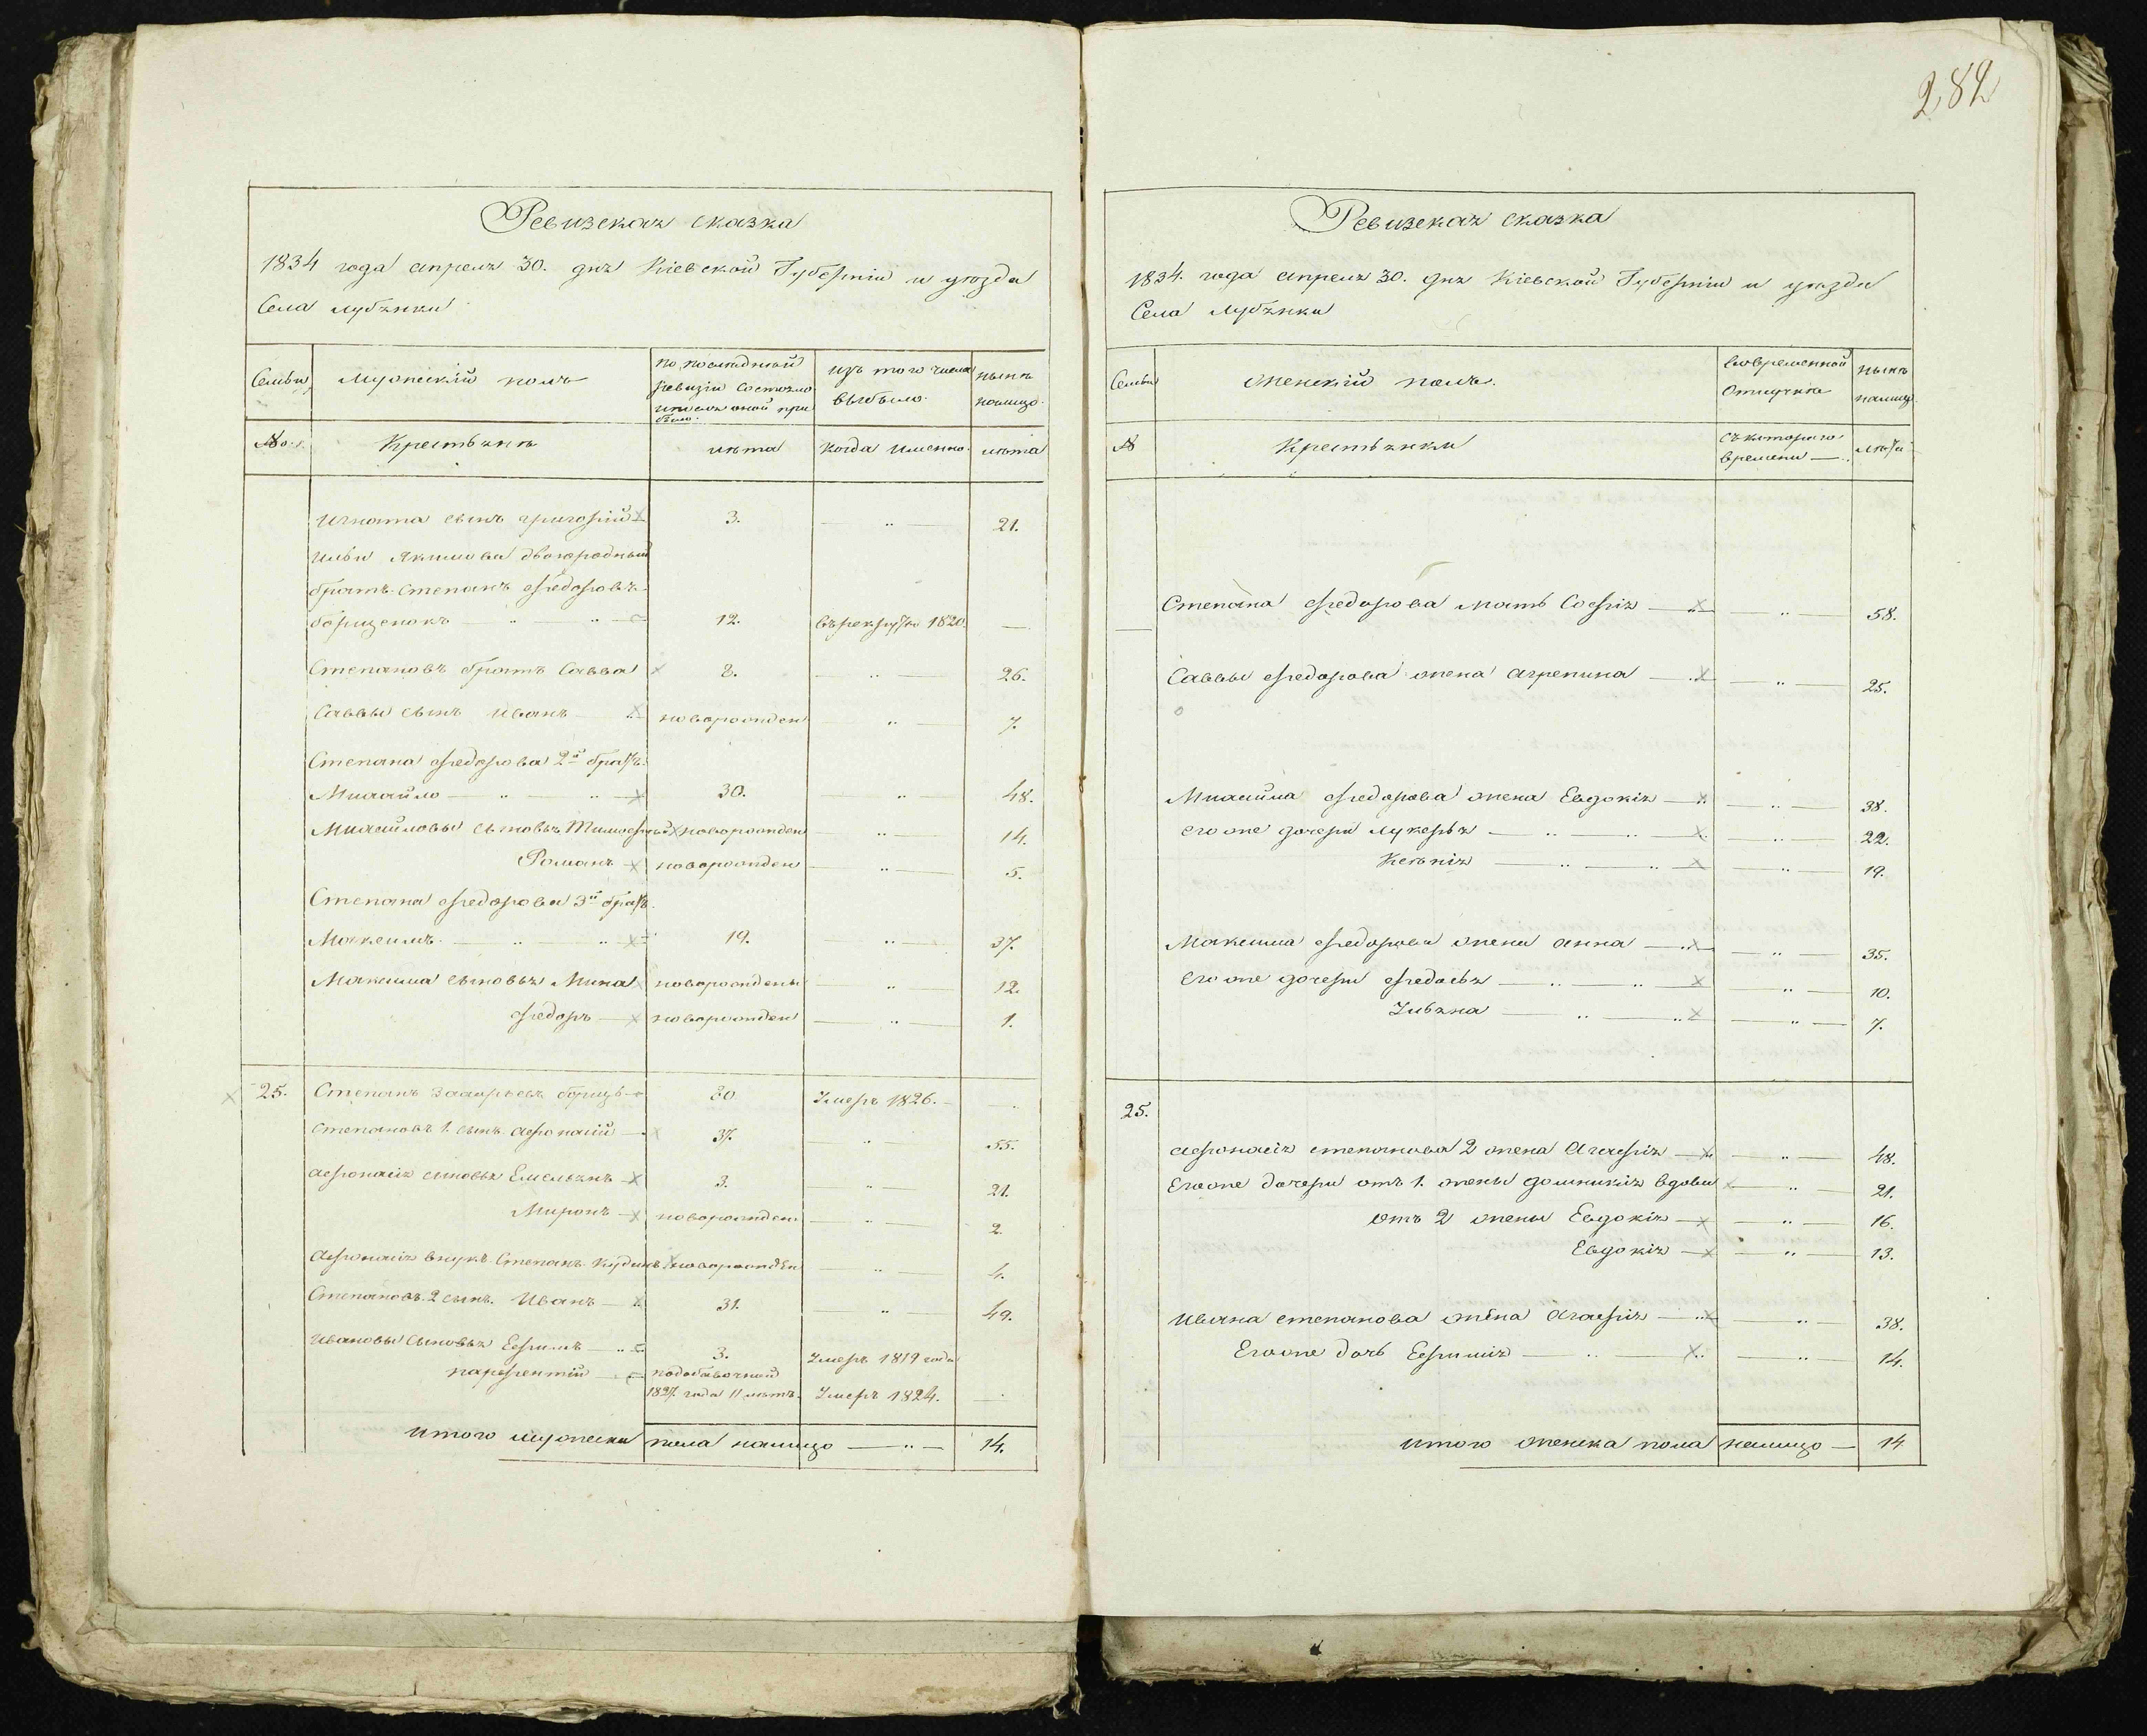 282
Ревизская сказка
1834 года апреля 30. дня Кіевской Губерніи и уезда
Села Лубянки
Семьи
Мужескій полъ
по последней
ревизіи состояло
и после оной при
было.
изъ того числа
выбыло.
ныне
налицо.
№.
Крестьяне
лета
когда именно.
лета
Игната сынъ григорій 3. 21.
Ильи Якимова двоюродный
братъ Степанъ Федоровъ
борщенокъ 12. въ рекруты 1820. —
Степановъ братъ Савва 8. 26.
Саввы сынъ Иванъ новорожден 7.
Степана Федорова 2й братъ
Михайло 30. 48.
Михайловы сыновья Тимофей новорожден 14.
Романъ новорожден 5.
Степана Федорова 3й братъ
Максимъ 19. 37.
Максима сыновья Мина новорожденъ 12.
Федоръ новорожден 1.
25. Степанъ Захарьевъ борщъ 80 Умеръ 1826. —
Степановъ 1. сынъ афонасій 37. 55.
афонасія сыновья Емельянъ 3. 21.
Миронъ новорожден 2.
афонасія внукъ Степанъ новорожден 4.
Степановъ 2 сынъ Иванъ 31. 49.
Ивановы сыновья Ефимъ 3. Умеръ 1819 года
парфентій подобавочной
1827. года 11 летъ. Умеръ 1824. —
итого мужеска пола налицо 14.
Ревизская сказка
1834. года апреля 30. дня Кіевской Губерніи и уезда
Села Лубянки
Семьи
женскій полъ.
вовременной
отлучке
ныне
налицо
№
Крестьянки
съ котораго
времени
лета
Степана Федорова мать Софія 58.
Саввы Федорова жена агрепина 25.
Михайла Федорова жена Евдокія 38.
его же дочери лукерья 22.
Ксенія 19.
Максима Федорова жена анна 35.
его же дочери Федосья 10.
Уляна 7.
25.
афонасія степанова 2 жена Агафія 48.
Его же дочери отъ 1. жены домникія вдова 21.
отъ 2 жены Евдокія 16.
Евдокія 13.
Ивана степанова жена Агафія 38.
Его же дочь Ефимія 14.
итого женска пола налицо 14